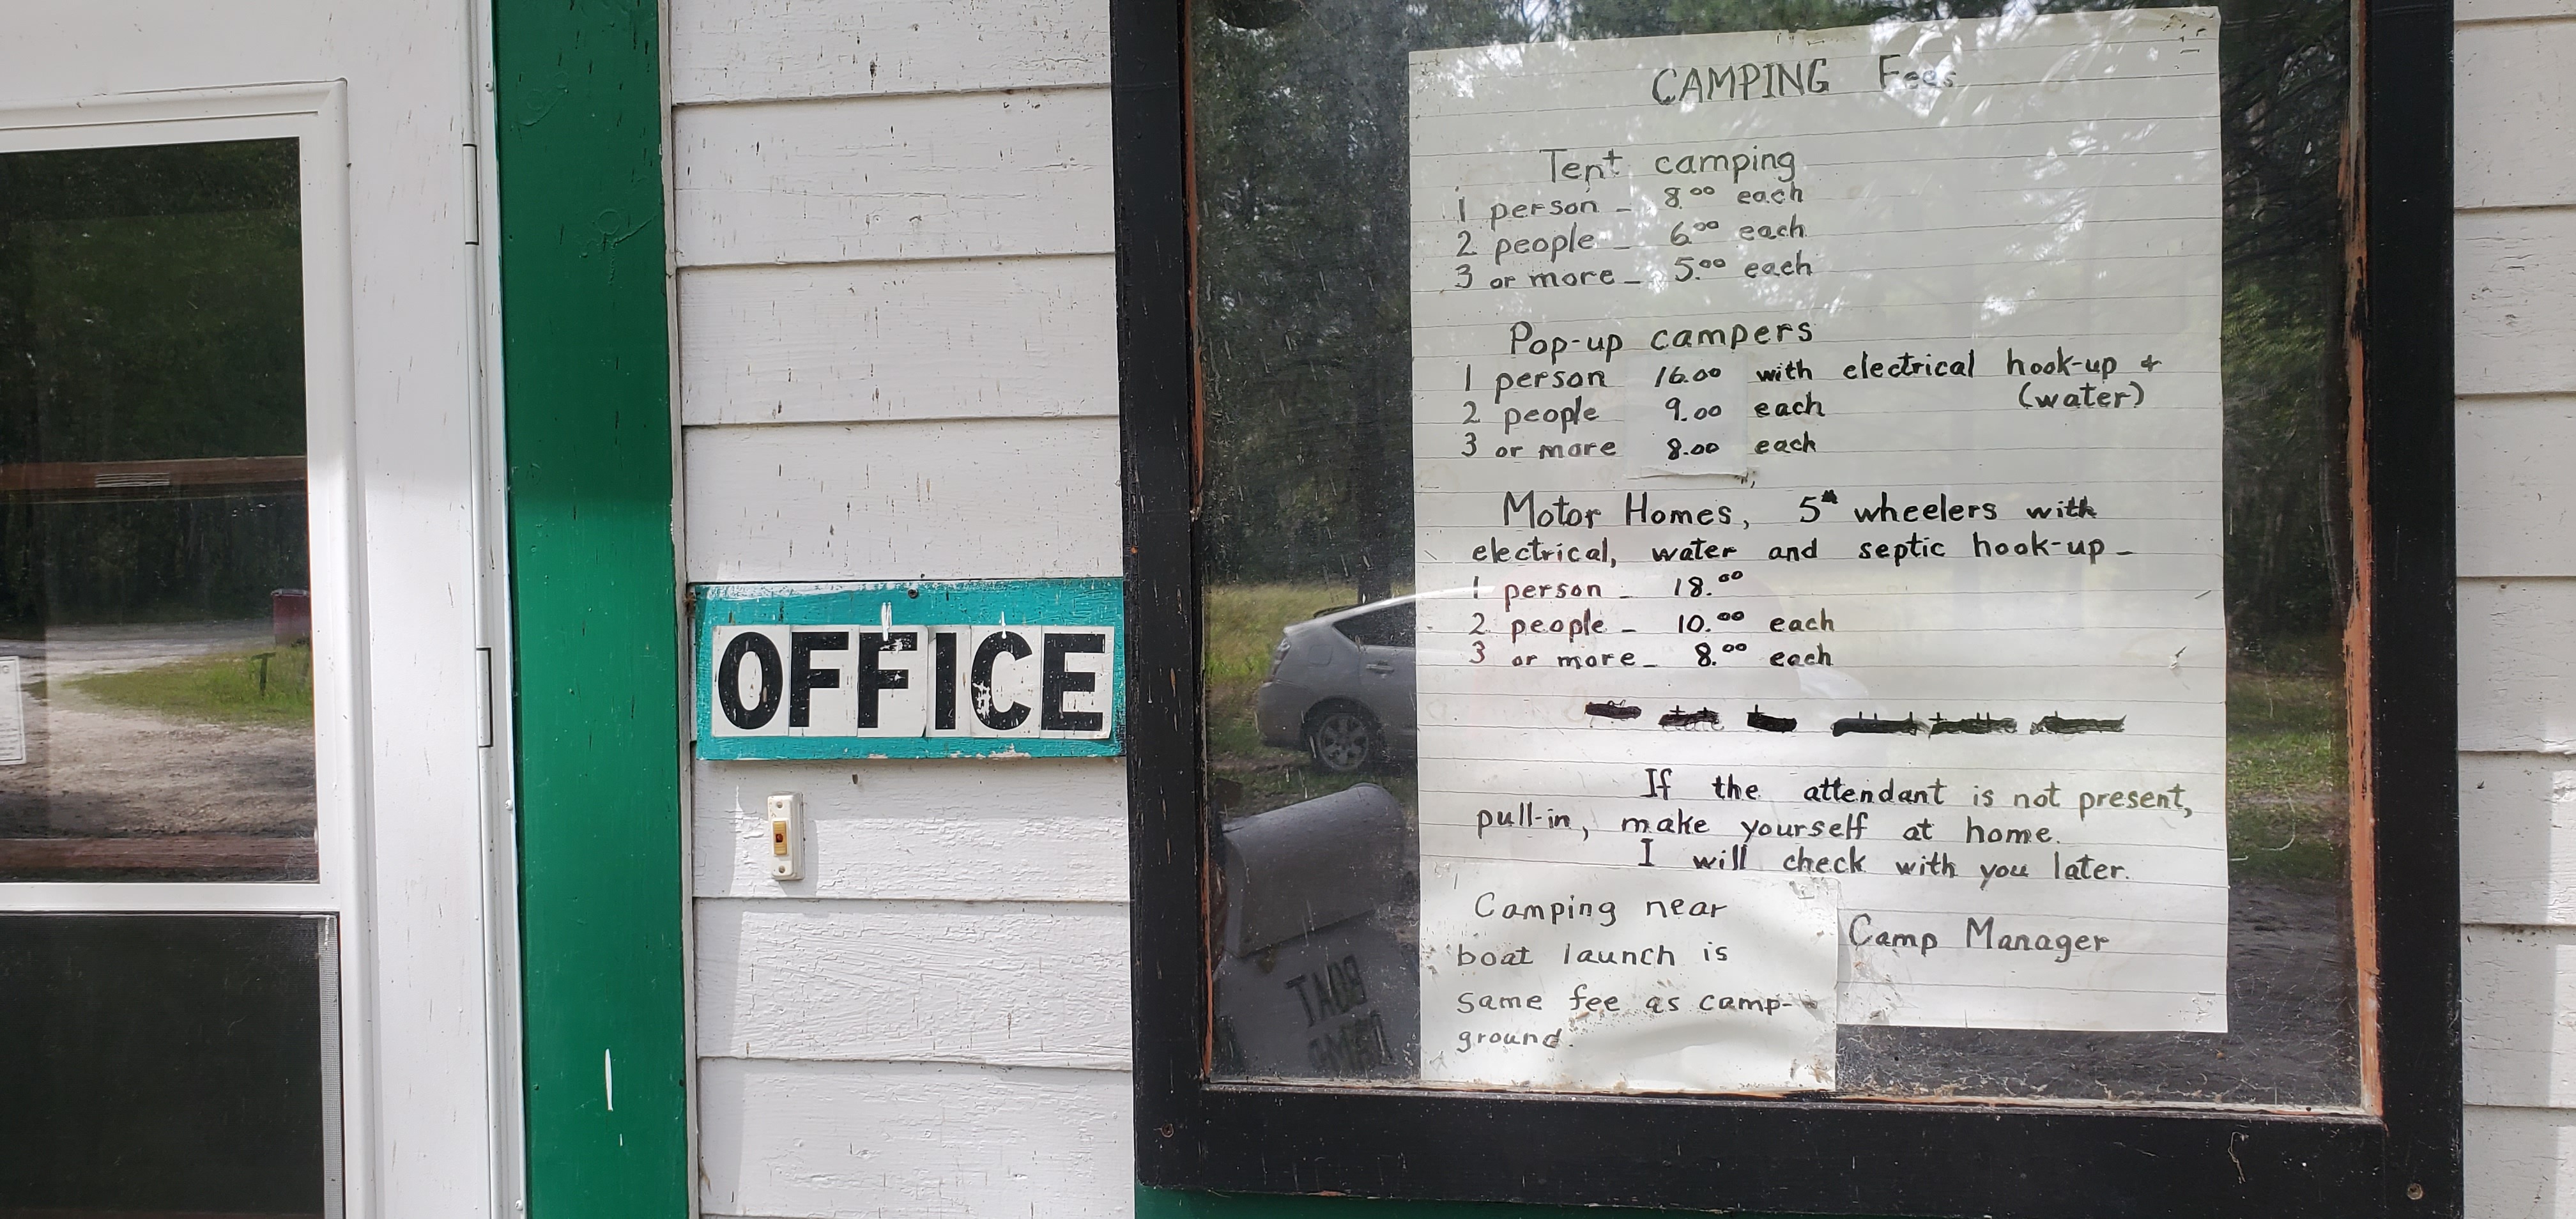 OFFICE
CAMPING Fees
Tent camping
1 person - 8.00 each
2 people - 6.00 each
3 or more - 5.00 each
Pop-up campers
1 person 16.00 with electrical hook-up +
(water)
2 people 9.00 each
3 or more 8.00 each
Motor Homes, 5th wheelers with
electrical, water and septic hook-up -
1 person - 18.00
2 people - 10.00 each
3 or more - 8.00 each
If the attendant is not present,
pull-in, make yourself at home.
I will check with you later.
Camp Manager
Camping near
boat launch is
same fee as camp-
ground.
BOAT